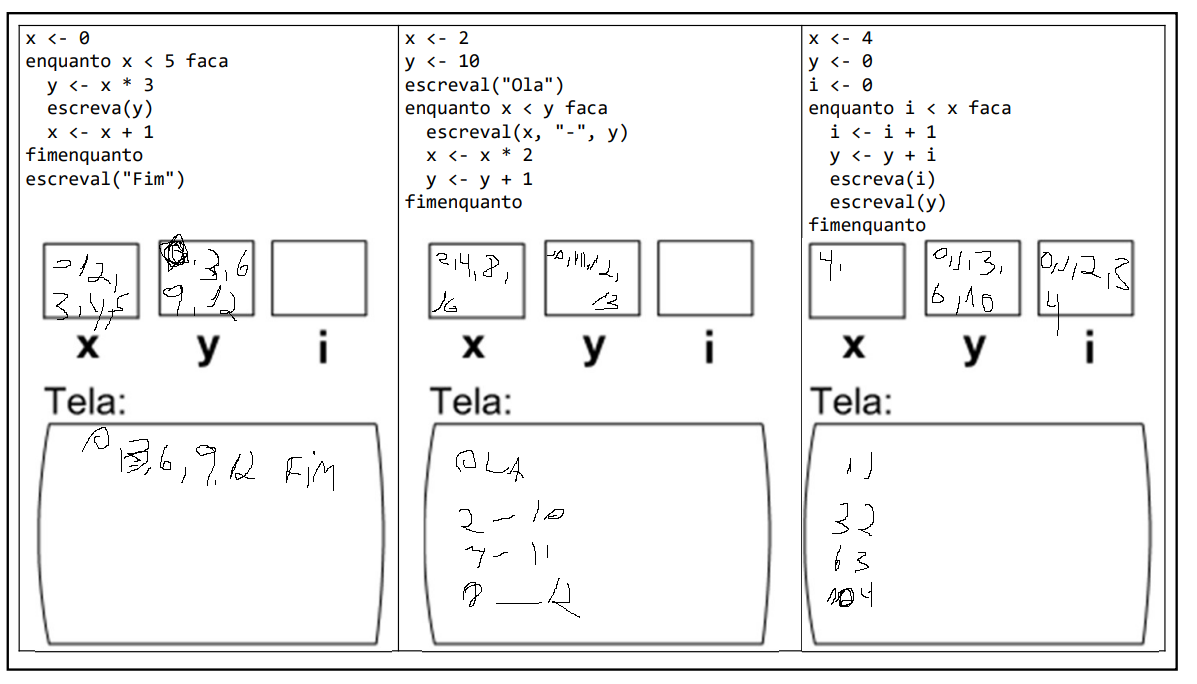 x <- 0
enquanto x < 5 faca
  y <- x * 3
  escreva(y)
  x <- x + 1
fimenquanto
escreval("Fim")
0 1 2,
3, 4, 5
3, 6
9, 12
x y i
Tela:
0
3, 6, 9, 12 FiM
x <- 2
y <- 10
escreval("Ola")
enquanto x < y faca
  escreval(x, "-", y)
  x <- x * 2
  y <- y + 1
fimenquanto
2, 4, 8,
16
10, 11, 12,
13
x y i
Tela:
OLA
2 - 10
4 - 11
8 - 12
x <- 4
y <- 0
i <- 0
enquanto i < x faca
  i <- i + 1
  y <- y + i
  escreva(i)
  escreval(y)
fimenquanto
4,
0, 1, 3,
6, 10
0, 1, 2, 3
4
x y i
Tela:
1 1
32
63
104